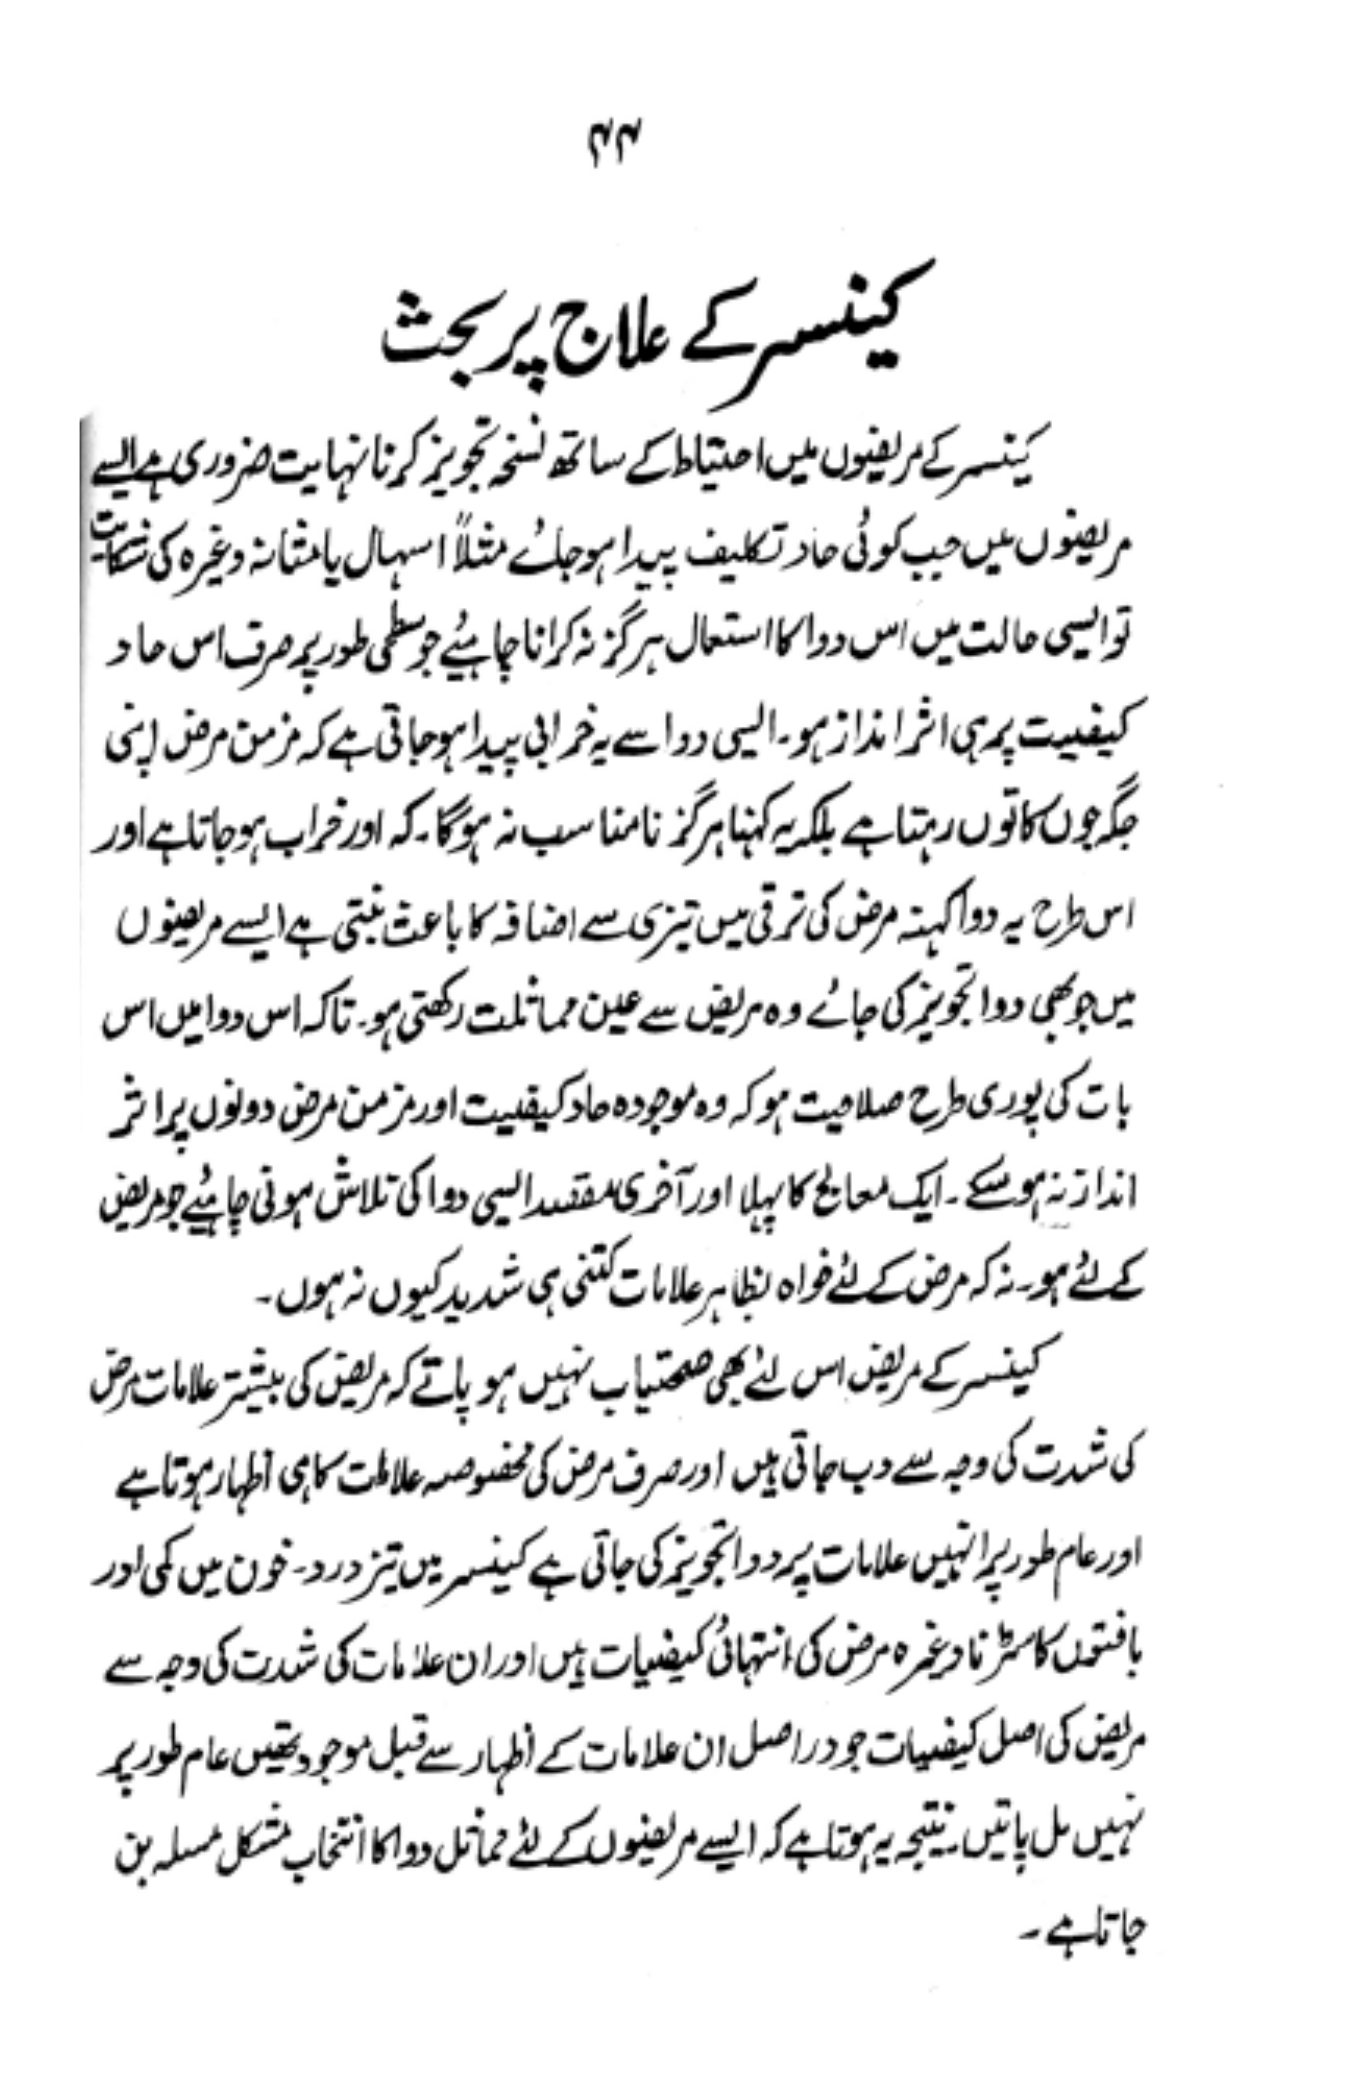 ۴۴
کینسر کے علاج پر بحث
کینسر کے مریضوں میں احتیاط کے ساتھ نسخہ تجویز کرنا نہایت ضروری ہے ایسے
مریضوں میں جب کوئی حاد تکلیف پیدا ہو جائے مثلاً اسہال یا مثانہ وغیرہ کی شکایت
تو ایسی حالت میں اس دوا کا استعمال ہرگز نہ کرانا چاہئے جو سطحی طور پر صرف اس حاد
کیفیت پر ہی اثر انداز ہو۔ ایسی دوا سے یہ خرابی پیدا ہو جاتی ہے کہ مزمن مرض اپنی
جگہ جوں کا توں رہتا ہے بلکہ یہ کہنا ہرگز نامناسب نہ ہوگا۔ کہ اور خراب ہو جاتا ہے اور
اس طرح یہ دوا کہنہ مرض کی ترقی میں تیزی سے اضافہ کا باعث بنتی ہے ایسے مریضوں
میں جو بھی دوا تجویز کی جائے وہ مریض سے عین مماثلت رکھتی ہو۔ تاکہ اس دوا میں اس
بات کی پوری طرح صلاحیت ہو کہ وہ موجودہ حاد کیفیت اور مزمن مرض دونوں پر اثر
انداز نہ ہو سکے۔ ایک معالج کا پہلا اور آخری مقصد ایسی دوا کی تلاش ہونی چاہئے جو مریض
کے لئے ہو۔ نہ کہ مرض کے لئے خواہ بظاہر علامات کتنی ہی شدید کیوں نہ ہوں۔
کینسر کے مریض اس لئے بھی صحتیاب نہیں ہو پاتے کہ مریض کی بیشتر علامات مرض
کی شدت کی وجہ سے دب جاتی ہیں اور صرف مرض کی مخصوصہ علامات کا ہی اظہار ہوتا ہے
اور عام طور پر انہیں علامات پر دوا تجویز کی جاتی ہے کینسر میں تیز درد۔ خون میں کمی اور
بافتوں کا سڑنا وغیرہ مرض کی انتہائی کیفیات ہیں اور ان علامات کی شدت کی وجہ سے
مریض کی اصل کیفیات جو دراصل ان علامات کے اظہار سے قبل موجود تھیں عام طور پر
نہیں مل پاتیں۔ نتیجہ یہ ہوتا ہے کہ ایسے مریضوں کے لئے مماثل دوا کا انتخاب مشکل مسلہ بن
جاتا ہے۔